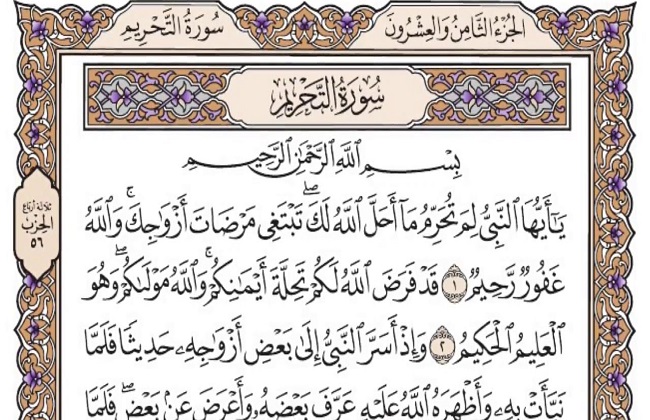 سُورَةُ التَّحْرِيمِ
الجُزْءُ الثَّامِنُ وَالْعِشْرُونَ
سُورَةُ التَّحْرِيمِ
بِسْمِ اللَّهِ الرَّحْمَٰنِ الرَّحِيمِ
يَٰٓأَيُّهَا ٱلنَّبِىُّ لِمَ تُحَرِّمُ مَآ أَحَلَّ ٱللَّهُ لَكَۖ تَبْتَغِى مَرْضَاتَ أَزْوَٰجِكَۚ وَٱللَّهُ
غَفُورٌ رَّحِيمٌ ١ قَدْ فَرَضَ ٱللَّهُ لَكُمْ تَحِلَّةَ أَيْمَٰنِكُمْۚ وَٱللَّهُ مَوْلَىٰكُمْۖ وَهُوَ
ٱلْعَلِيمُ ٱلْحَكِيمُ ٢ وَإِذْ أَسَرَّ ٱلنَّبِىُّ إِلَىٰ بَعْضِ أَزْوَٰجِهِۦ حَدِيثًا فَلَمَّا
نَبَّأَتْ بِهِۦ وَأَظْهَرَهُ ٱللَّهُ عَلَيْهِ عَرَّفَ بَعْضَهُۥ وَأَعْرَضَ عَنۢ بَعْضٍۖ فَلَمَّا
ثلاثة أرباع
الحِزْب
٥٦